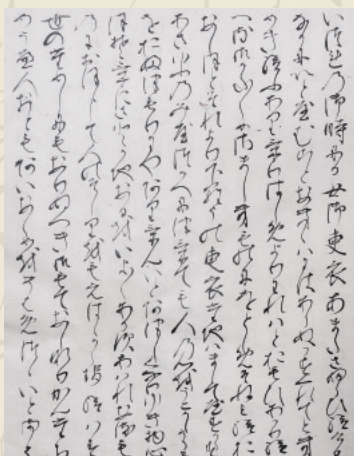 いつれの御時にか女御更衣あまたさふらひ給け
なかにいとやむことなきゝはにはあらぬかすくれてとき
めき給ふありけりはしめよりわれはとおもひあかり給
へる御かた〱めさましき物におとしめそねみ給
おなしほとそれより下らうの更衣たちはましてやすから
あさゆふの宮つかへにつけても人の心をうこかし
をおふつもりにやありけむいとあつしくなりゆき物心
ほそけにさとかちなるをいよ〱あかすあはれなる物
におもほして人のそしりをもえはゝからせ給はす
世のためしにもなりぬへき御もてなしなりかんたち
めうへ人なともあいなくめをそはめつゝいとまは